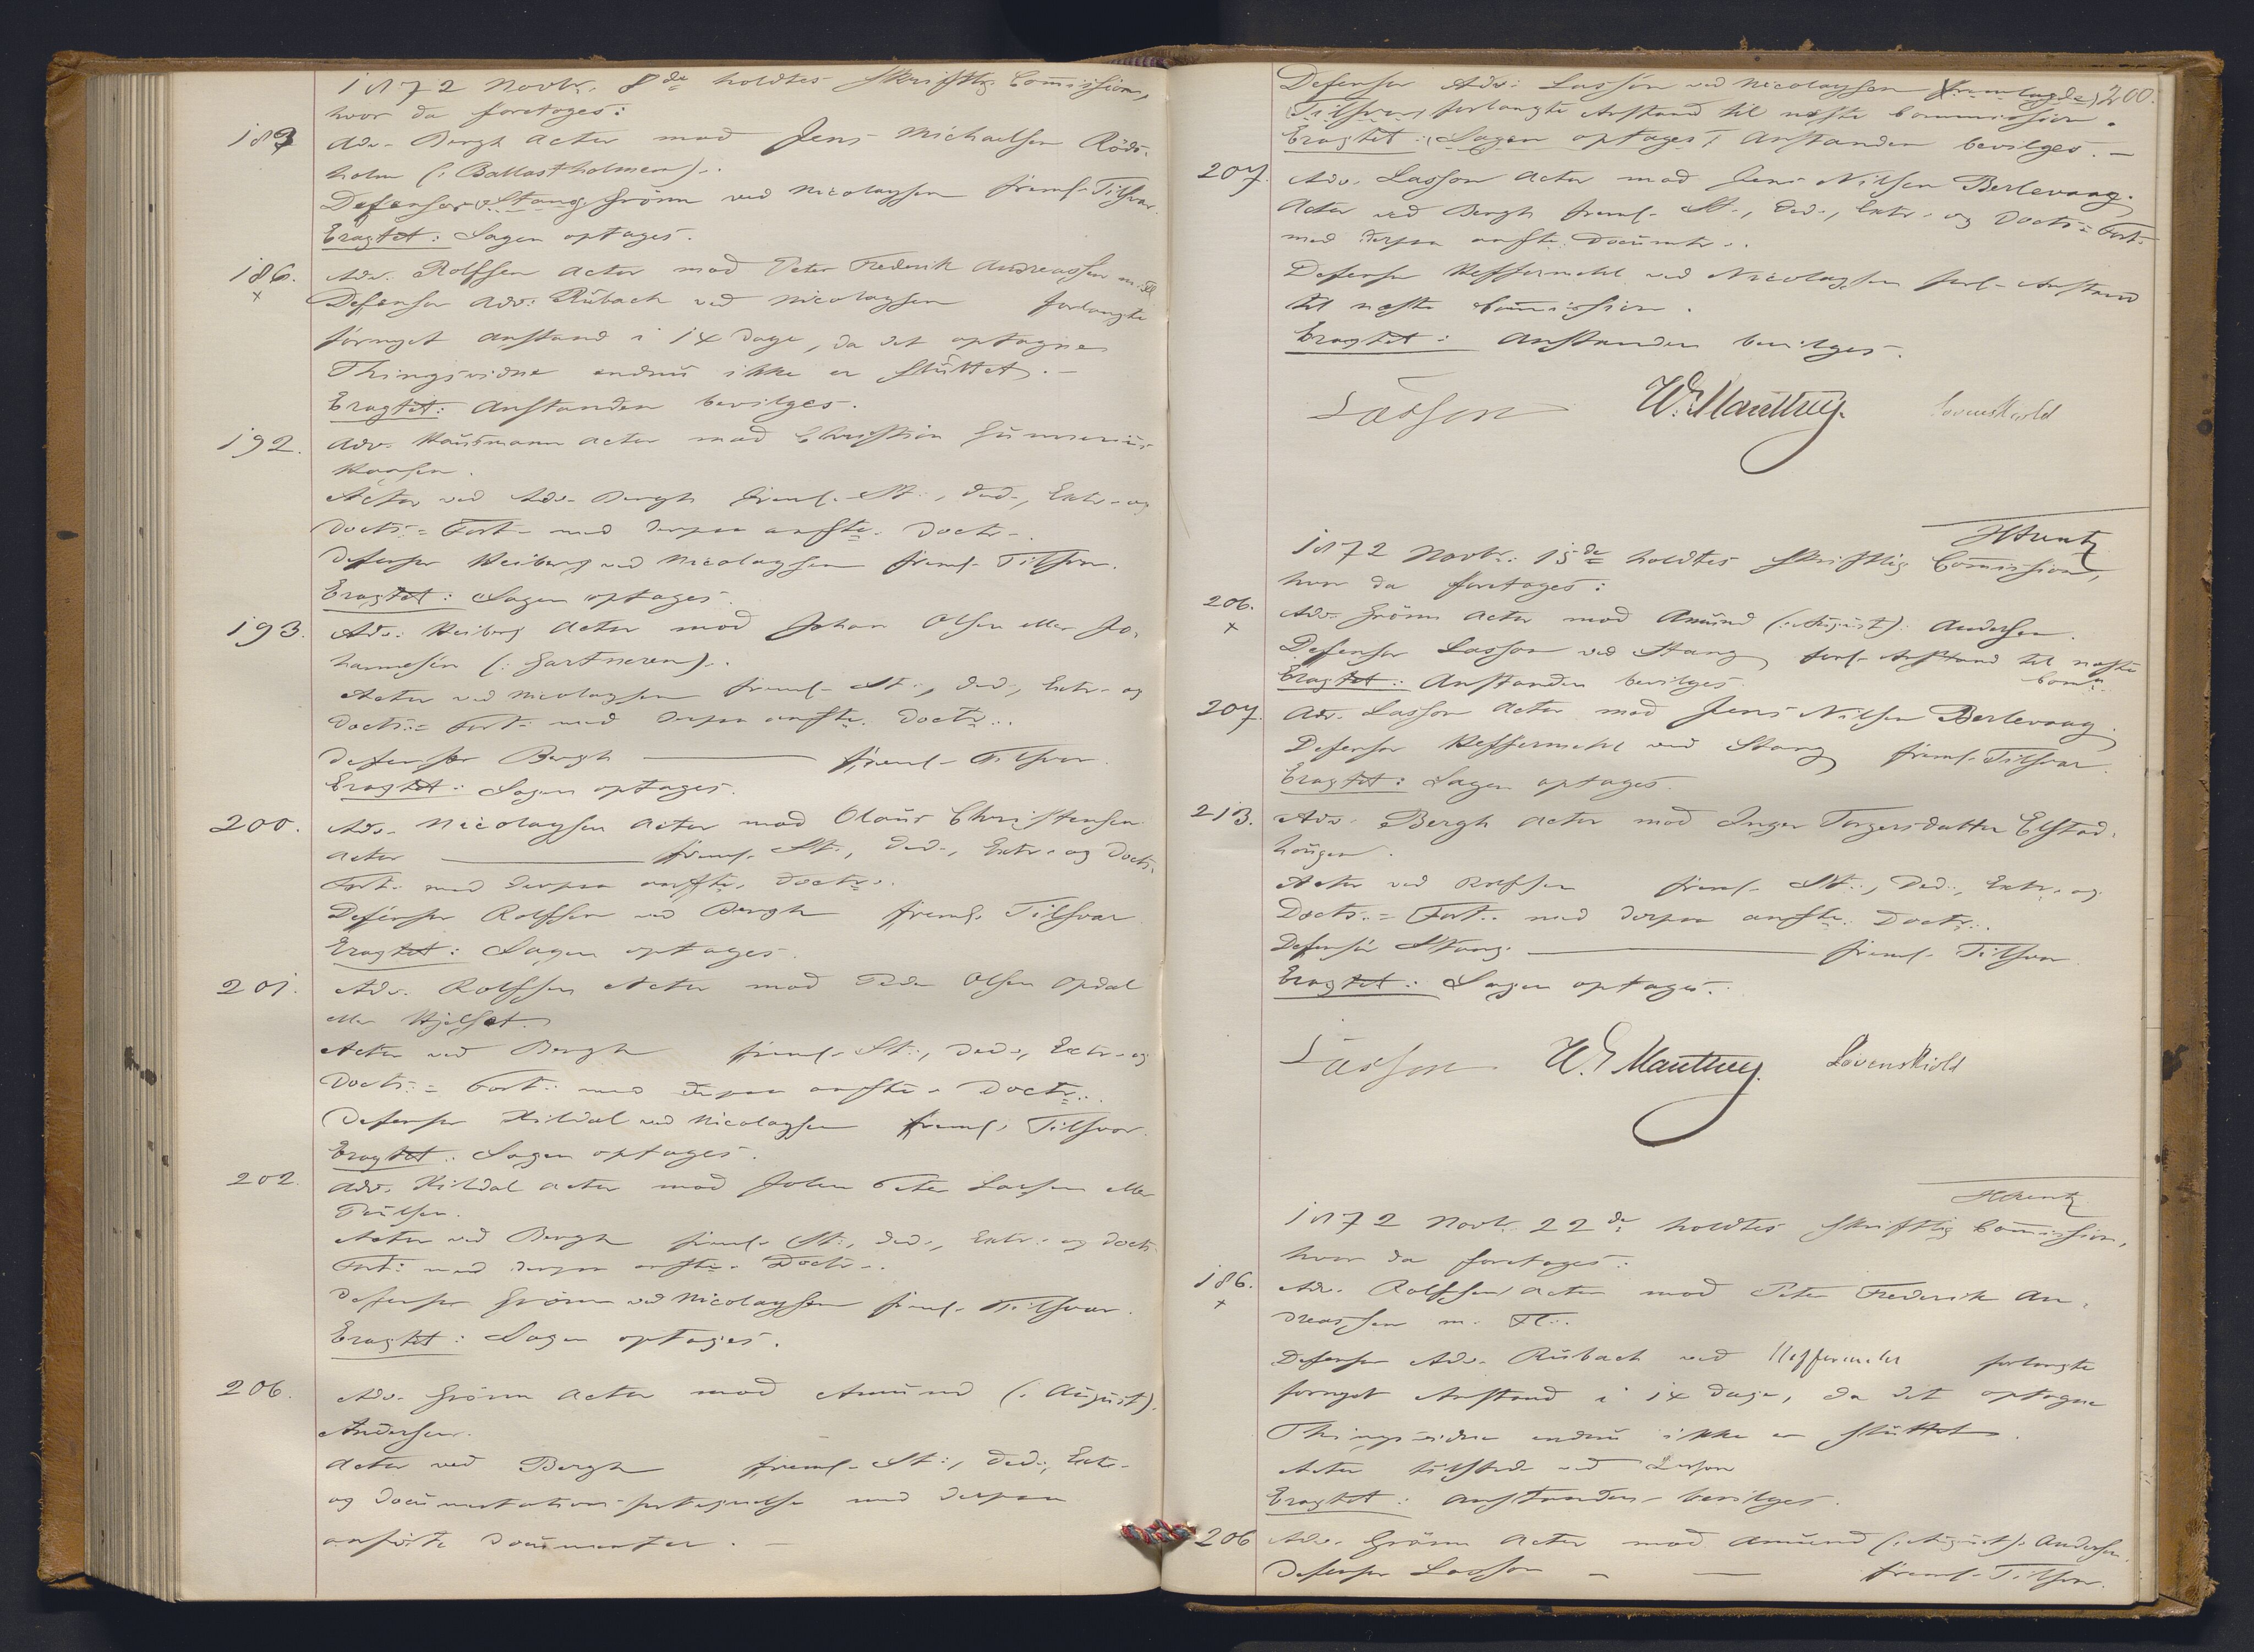 1872 Novbr. 8de holdtes skriftlig Commission,
hvor da foretoges:
183 Adv. Bergh Actor mod Jens Michaelsen Röds-
holm (: Ballastholmen).
Defensor Stang Grönn ved Nicolaysen freml. Tilsvar.
Eragtet: Sagen optages.
186. Adv. Rolfsen Actor mod Peter Frederik Andreassen m. Fl.
x
Defensor Adv: Rübach ved Nicolaysen forlangte
fornyet Anstand i 14 Dage, da det optagne
Thingsvidne endnu ikke er sluttet. —
Eragtet: Anstanden bevilges.
192. Adv. Hausmann Actor mod Christian Gunnerius
Hansen.
Actor ved Adv. Bergh freml. St:, Ded., Extr. og
Docts: = Fort. med derpaa anfte. Doctr.
Defensor Heiberg ved Nicolaysen freml. Tilsvar.
Eragtet: Sagen optages.
193. Adv: Heiberg Actor mod Johan Olsen eller Jo-
hannesen (: Gartneren).
Actor ved Nicolaysen freml. St:, Ded:, Extr. og
Docts: = Fort. med derpaa anfte. Doctr..
Defensor Bergh — freml. Tilsvar.
Eragtet: Sagen optages.
200. Adv. Nicolaysen Actor mod Olaus Christensen
Actor — freml. St:, Ded., Extr. og Docts.
Fort. med derpaa anfte. Doctr..
Defensor Rolfsen ved Bergh freml. Tilsvar
Eragtet: Sagen optages.
201. Adv. Rolfsen Actor mod Peder Olsen Opdal
eller Hjelset.
Actor ved Bergh freml. St:, Ded., Extr. og
Docts: = Fort: med derpaa anfte. Doctr..
Defensor Kildal ved Nicolaysen freml. Tilsvar.
Eragtet: Sagen optages.
202. Adv. Kildal Actor mod John Peter Larsen eller
Paulsen.
Actor ved Bergh freml. St:, Ded., Extr. og Docts
Fort: med derpaa anfte. Doctr..
Defensor Grönn ved Nicolaysen freml. Tilsvar.
Eragtet: Sagen optages.
206. Adv. Grönn Actor mod Amund (: August).
Andersen.
Actor ved Bergh freml. St:, Ded., Extr.
og Documentations-fortegnelse med derpaa
anförte Documenter. —
Defensor Adv: Lasson ved Nicolaysen fremlagde 200.
Tilsvar, forlangte Anstand til næste Commission.
Eragtet: Sagen optages, Anstanden bevilges. —
207. Adv. Lasson Actor mod Jens Nilsen Berlevaag.
Actor ved Bergh freml. St., Ded., Extr. og Docts: = Fort.
med derpaa anfte. Documtr..
Defensor Heffermehl ved Nicolaysen forl. Anstand
til næste Commission.
Eragtet: Anstanden bevilges.
Lasson W. Manthey Lövenskiold
1872 Novbr. 15de holdtes skriftlig Commission,
hvor da foretoges:
206. Adv. Grönn Actor mod Amund (: August). Andersen.
x
Defensor Lasson ved Stang forl. Anstand til næste
Eragtet: Anstanden bevilges. Comm.
207. Adv. Lasson Actor mod Jens Nilsen Berlevaag
Defensor Heffermehl ved Stang freml. Tilsvar.
Eragtet: Sagen optages.
213. Adv. Bergh Actor mod Inger Torgersdatter Elstad-
haugen.
Actor ved Rolfsen freml. St:, Ded:, Extr. og
Docts: = Fort. med derpaa anfte. Doctr..
Defensor Stang — freml. Tilsvar
Eragtet: Sagen optages.
Lasson W. Manthey. Lövenskiold
1872 Novbr. 22de holdtes skriftlig Commission,
hvor da foretoges:
186. Adv. Rolfsen Actor mod Peter Frederik An-
x
dreassen m. Fl..
Defensor Adv. Rübach ved Heffermehl forlangte
fornyet Anstand i 14 Dage, da det optagne
Thingsvidne endnu ikke er sluttet.
Actor tilstede ved Lasson
Eragtet: Anstanden bevilges.
206 Adv. Grönn Actor mod Amund (: August). Andersen.
Defensor Lasson — — freml. Tilsvar.